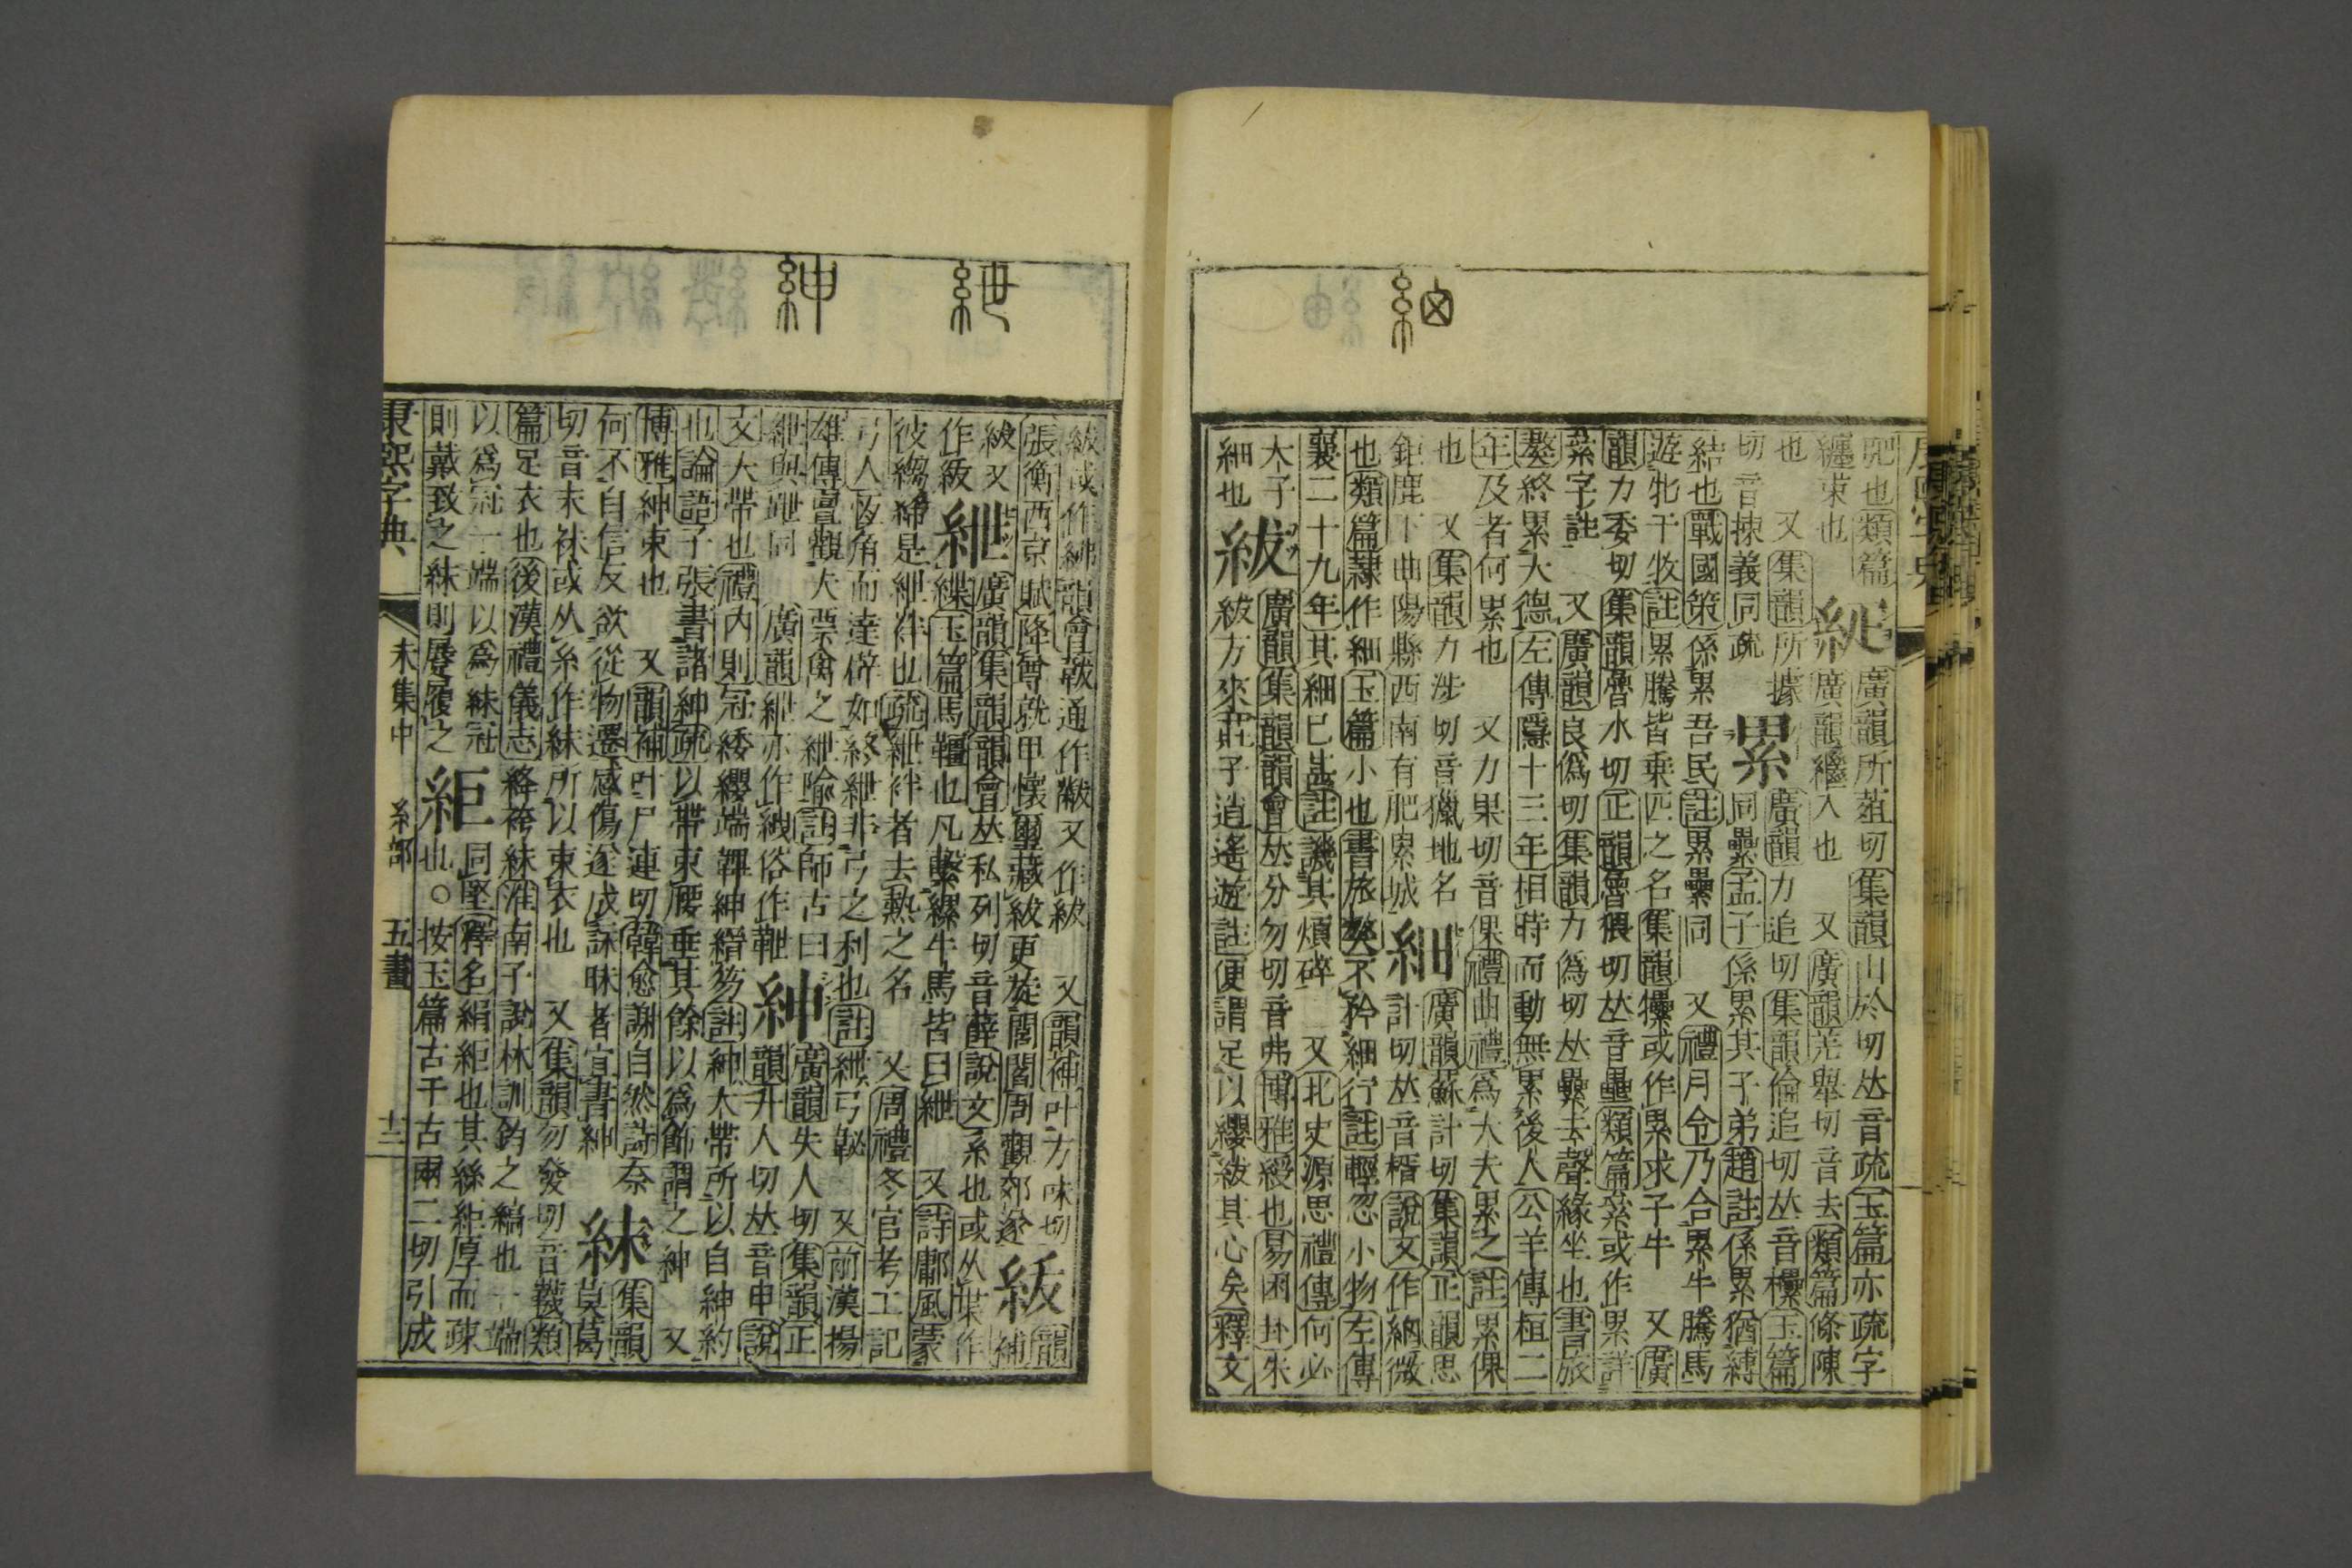 細
兜也類篇 廣韻所葅切集韻山於切𠀤音疏玉篇亦疏字
纏束也 廣韻繼入也 又廣韻羌舉切音去類篇條陳
也 又集韻所據 廣韻力追切集韻倫追切𠀤音欙玉篇
切音捒義同疏 累 同纍孟子係累其子弟趙註係累猶縛
結也戰國策係累吾民註累纍同 又禮月令乃合累牛騰馬
遊牝于牧註累騰皆乗匹之名集韻㹎或作累求子牛 又廣
韻力委切集韻魯水切正韻魯猥切𠀤音壘類篇絫或作累詳
絫字註 又廣韻良僞切集韻力僞切𠀤纍去聲緣坐也書旅
獒終累大德左傳隱十三年相時而動無累後人公羊傳桓二
年及者何累也 又力果切音倮禮曲禮爲大夫累之註累倮
也 又集韻力涉切音獵地名 廣韻蘇計切集韻正韻思
鉅鹿下曲陽縣西南有肥累城 細 計切𠀤音壻說文作納微
也類篇隸作細玉篇小也書旅獒不矜細行註輕忽小物左傳
襄二十九年其細已甚註譏其煩碎 又北史源思禮傳何必
太子 廣韻集韻韻會𠀤分勿切音弗博雅綬也易困卦朱
細也 紱 紱方來莊子逍遙遊註便謂足以纓紱其心矣釋文
紲
紳
紱或作紼韻會韍通作黻又作紱 又韻補叶方味切
張衡西京賦降尊就甲懷璽藏紱更旋閭閻周觀郊遂 紱 韻補
紱又 廣韻集韻韻會𠀤私列切音薛說文系也或从葉作
作紱 紲 緤玉篇馬韁也凡繫縲牛馬皆曰紲 又詩鄘風蒙
彼縐絺是紲袢也疏紲袢者去熱之名 又周禮冬官考工記
弓人恆角而達僻如終紲非弓之利也註紲弓䪐 又前漢揚
雄傳亶觀夫票禽之紲隃註師古曰 廣韻失人切集韻正
紲與跇同 廣韻紲亦作絏俗作靾 紳 韻升人切𠀤音申說
文大帶也禮內則冠緌纓端韠紳縉笏註紳大帶所以自紳約
也論語子張書諸紳疏以帶束腰垂其餘以爲飾謂之紳 又
博雅紳束也 又韻補叶尸連切韓愈謝自然詩奈 集韻
何不自信反欲從物遷感傷遂成詠昧者宜書紳 絉 莫葛
切音末袜或从糸作絉所以束衣也 又集韻勿發切音韈類
篇足衣也後漢禮儀志絳袴絉淮南子說林訓鈞之縞也一端
以爲冠一端以爲絉冠 同堅釋名絹䋎也其絲䋎厚而疎
則戴致之絉則屦履之 䋎 也○按玉篇古千古爾二切引成
康熙字典 未集中 糸部 五畫 十三